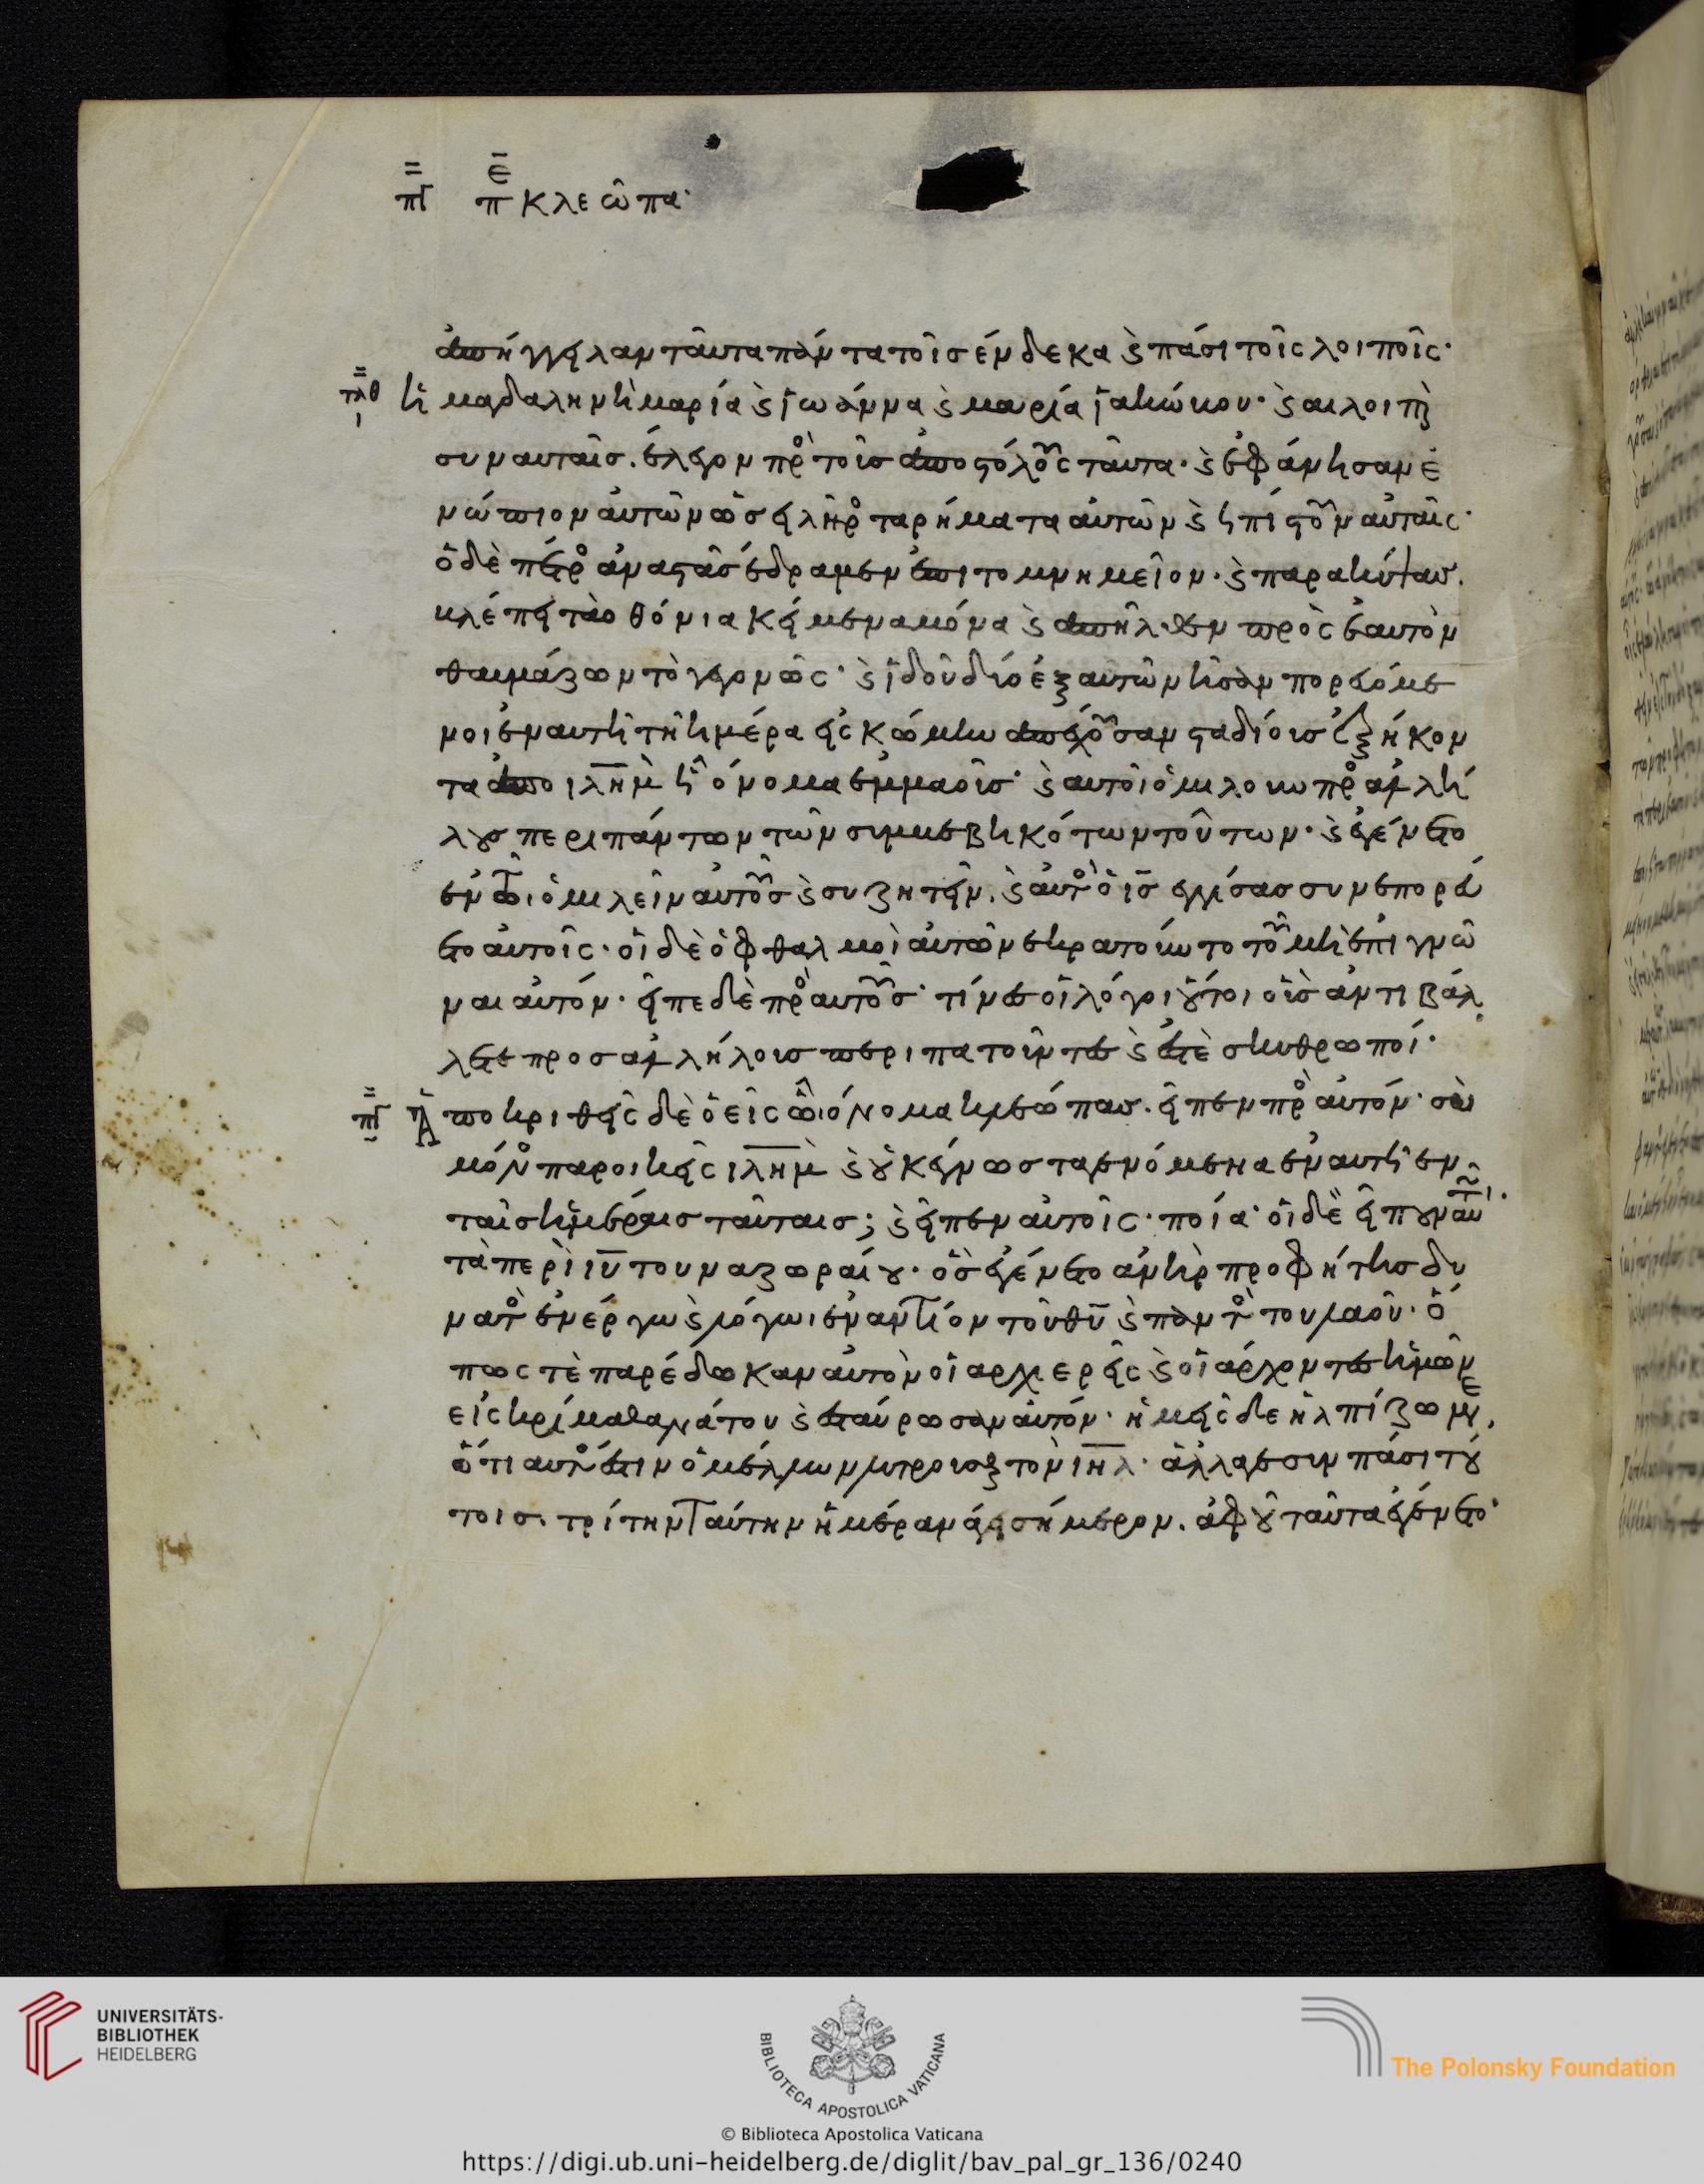 πγ πε κλεῶπα·
ἀπήγγειλαν ταῦτα πάντα τοῖσ ἕνδεκα ϗ πᾶσι τοῖς λοιποῖς·
τλθ ἡ μαγδαληνὴ μαρία ϗ ἰωάννα ϗ μαρία ἰακώβου· ϗ αι λοιπαὶ
συν αυταῖσ. ἔλεγον πρὸ τοῖσ ἀποστόλους ταῦτα· ϗ ἐφάνησαν ἐ
νώπιον ἀυτῶν ὡσεὶ λῆρο τα ρήματα αυτῶν ϗ ἠπίστουν αὐταῖς·
ὁ δὲ πέτρο ἀναστὰσ ἔδραμεν ἐπι το μνημεῖον· ϗ παρακύψασ.
βλέπει τὰ οθόνια κείμενα μόνα ϗ ἀπῆλθεν πρὸς ἑαυτὸν
θαυμάζων τὸ γεγονὼς· ϗ ἰδοῦ δύο ἐξ αυτῶν ἦσαν πορευόμε
νοι ἐν αυτῆ τῆ ἡμέρα εἰς κώμην ἀπέχουσαν σταδίουσ ἑξήκον
τα ἀπο ιλημ ἧ ὄνομα ἐμμαοῦσ· ϗ αυτοὶ ὁμιλουν πρὸ ἀλλή
λουσ περι πάντων τῶν συμβεβηκότων τοῦτων· ϗ ἐγένετο
ἐν τῶι ὁμιλεῖν αυτοὺσ ϗ συζητεῖν. ϗ αὐτὸ ὁ ισ ἐγγίσασ συνεπορεύ
ετο ἀυτοῖς· οἱ δὲ ὀφθαλμοὶ αυτῶν ἐκρατούντο τοῦ μὴ ἐπιγνῶ
ναι αυτόν· εἶπε δὲ πρὸ αυτοὺσ· τίνεσ οἱ λόγοι οὗτοι οὓσ ἀντιβάλ
λετε προσ ἀλλήλουσ περιπατοῦντεσ ϗ ἐστὲ σκυθρωποί·
πγ Ἀποκριθεὶς δὲ ὁ εἷς ὧι ὄνομα κλεώπασ. εἶπεν πρὸ αὐτόν· σὺ
μόνο παροικεῖς ιλημ ϗ οὐκ ἔγνωσ τα γενόμενα ἐν αυτῆ ἐν
ταῖσ ἡμέραισ ταῦταισ; ϗ εἶπεν αὐτοῖς· ποία· οἱ δὲ εἶπον αὐτῶι·
τὰ περὶ ιυ του ναζωραίου· ὃσ ἐγένετο ἀνὴρ προφήτησ δυ
νατὸ ἐν ἔργω ϗ λόγωι ἐναντίον τοῦ θυ ϗ παντὸ του λαοῦ· ὅ
πως τὲ παρέδωκαν αυτὸν οἱ αρχιερεῖς ϗ οἱ άρχοντεσ ἡμῶν
εἰς κρίμα θανάτου ϗ ἐσταύρωσαν αὐτόν· ἡμεῖς δε ἠλπίζωμεν,
ὅτι αυτό ἐστιν ὁ μέλλων λυτρουσθαι τὸν ιηλ· ἀλλαγε συν πᾶσι τού
τοισ. τρίτην ταύτην ἡμέραν ἄγει σήμερον. ἀφ οὗ ταῦτα ἐγένετο·
UNIVERSITÄTS-
BIBLIOTHEK
HEIDELBERG
BIBLIOTECA APOSTOLICA VATICANA
The Polonsky Foundation
© Biblioteca Apostolica Vaticana
https://digi.ub.uni-heidelberg.de/diglit/bav_pal_gr_136/0240